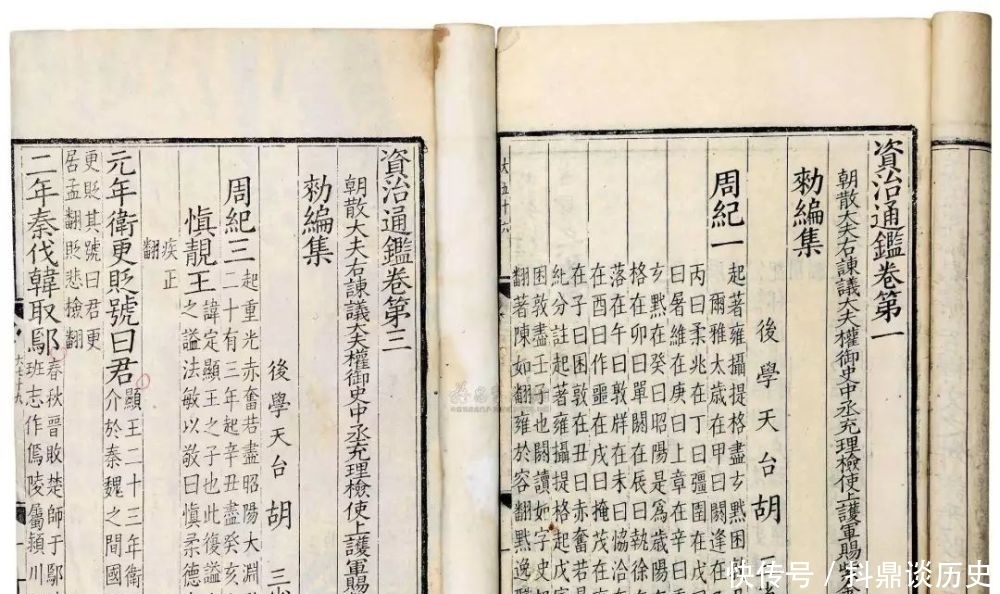 資治通鑑卷第一
朝散大夫右諫議大夫權御史中丞充理檢使上護軍賜紫
勑編集
後學天台胡
周紀一
起著雍攝提格盡玄黓困
爾雅太歲在甲曰閼逢在
丙曰柔兆在丁曰疆圉在戊
曰屠維在庚曰上章在辛
玄黓在癸曰昭陽是爲歲陽
格在卯曰單閼在辰曰執徐
落在午曰敦牂在未曰協洽
在酉曰作噩在戌曰掩茂在
在子曰困敦在丑曰赤奮若
紀分註起著雍攝提格起戊
困敦盡壬子也閼讀如字史
翻著陳如翻雍於容翻黓逸
大五十六
資治通鑑卷第三
朝散大夫右諫議大夫權御史中丞充理檢使上護軍賜
勑編集
後學天台胡 三省
周紀三
起重光赤奮若盡昭陽大淵
二十有三年起辛丑盡癸亥
愼靚王
諱定顯王之子也此復謚
之謚法敏以敬曰愼柔德
疾正
翻
元年衛更貶號曰君
顯王二十三年衛
介於秦魏之間國
更貶其號曰君更
居孟翻貶悲檢翻
二年秦伐韓取鄢
春秋晉敗楚師于鄢
班志作傿陵屬潁川
快传号 / 科鼎谈历史